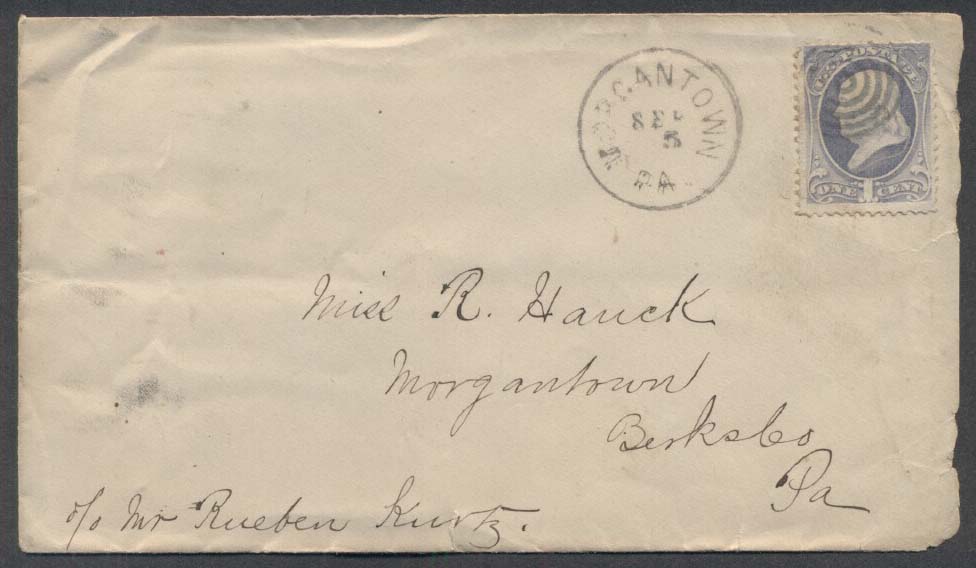 MORGANTOWN
SEP
5
PA.
U.S. POSTAGE
ONE 1 CENT
Miss R. Hauck
Morgantown
Berks Co
Pa
c/o Mr Rueben Kurtz.